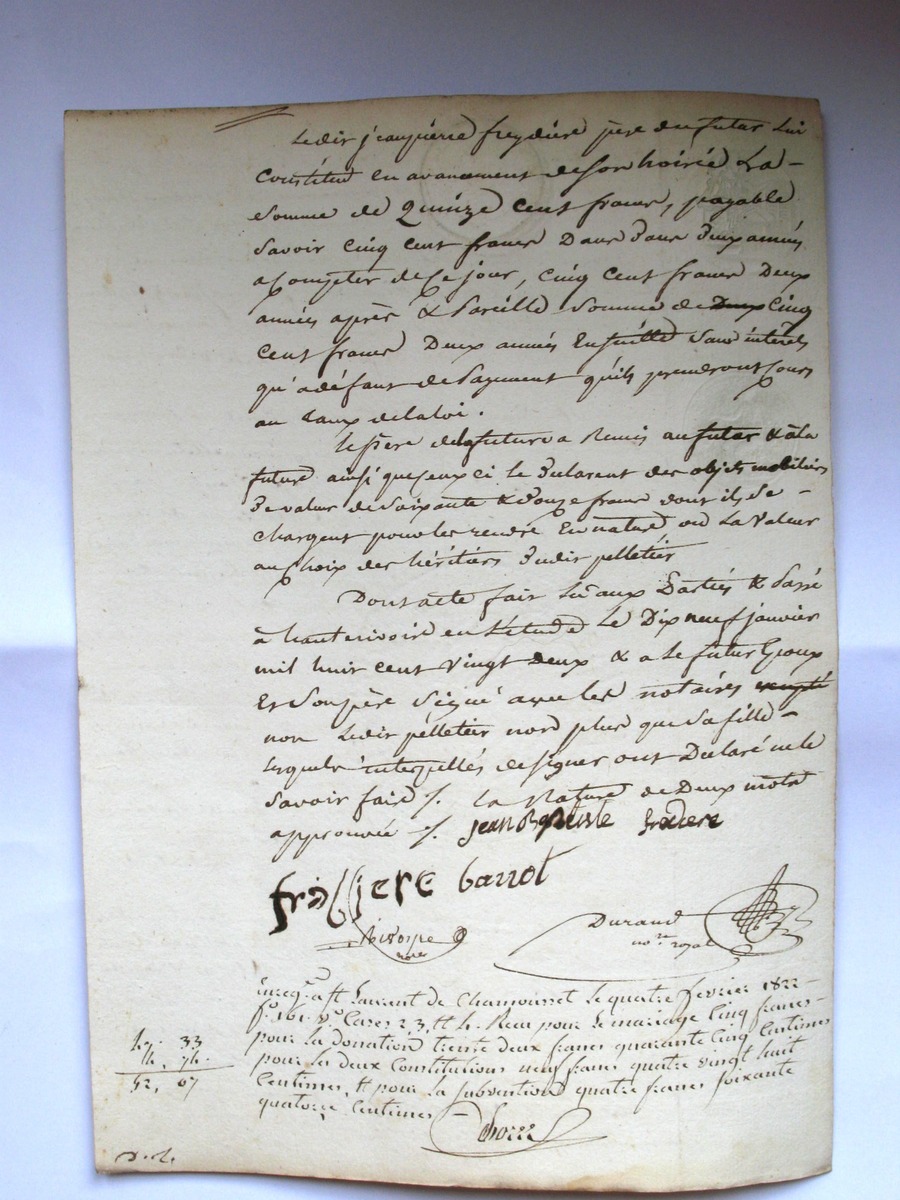 Ledit jeanpierre freydière père du futur lui
Constitue en avancement de son hoirie La
Somme de Quinze cent francs, payable
Savoir cinq cent francs Dans Deux années
a Compter de Ce jour, cinq cent francs Deux
années après & Pareille Somme de Deux Cinq
Cent francs Deux années Ensuitte Sans intérêts
qu'a défaut de Payement qu'ils prendront Cours
au taux de la loi.
le père de la future a Remis au futur & à la
future ainsi que ceux ci le Declarent des objets mobiliers
De valeur de Soixante & Douze francs dont ils Se
Chargent pour les rendre En nature ou La Valeur
au Choix des héritiers Dudit pelletier
Dont acte fait Lu aux Parties & Passé
à hauterivoire en L'étude Le Dix neuf janvier
mil huit cent vingt deux & a le futur Epoux
Et Son père Signé avec les notaires
non Ledit pelletier non plus que Sa fille
lesquels interpellés de signer ont Declaré ne le
Savoir faire /. la Rature de Deux mots
approuvée /. jean Baptiste
barrot
Durand
no.re royal
enreg.é a St Laurant de Chamousset le quatre fevrier 1822
f.o 161 v.o Cases 2, 3, & 4. Recu pour le mariage Cinq francs
pour la Donation trente deux francs quarante Cinq Centimes
pour les deux Constitutions neuf francs quatre vingt huit
Centimes, & pour la subvention quatre francs soixante
quatorze Centimes
47. 33
4. 74.
52, 07